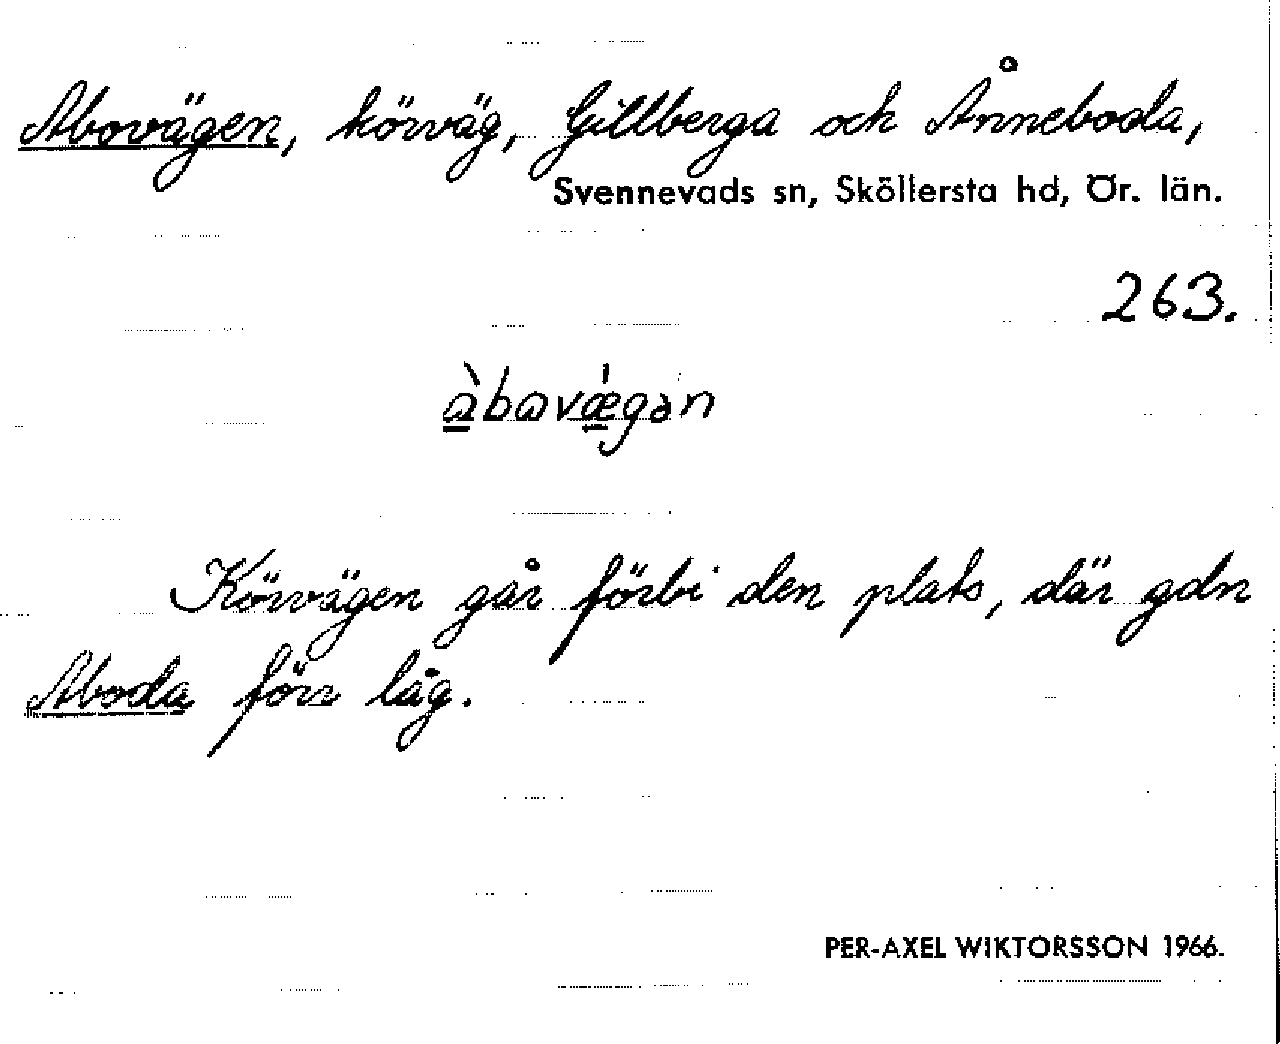 Abovägen, körväg, Gillberga och Ånneboda,
Svennevads sn, Sköllersta hd, Ör. län.
263.
àbavǽgan
Körvägen går förbi den plats, där gdn
Aboda förr låg.
PER-AXEL WIKTORSSON 1966.